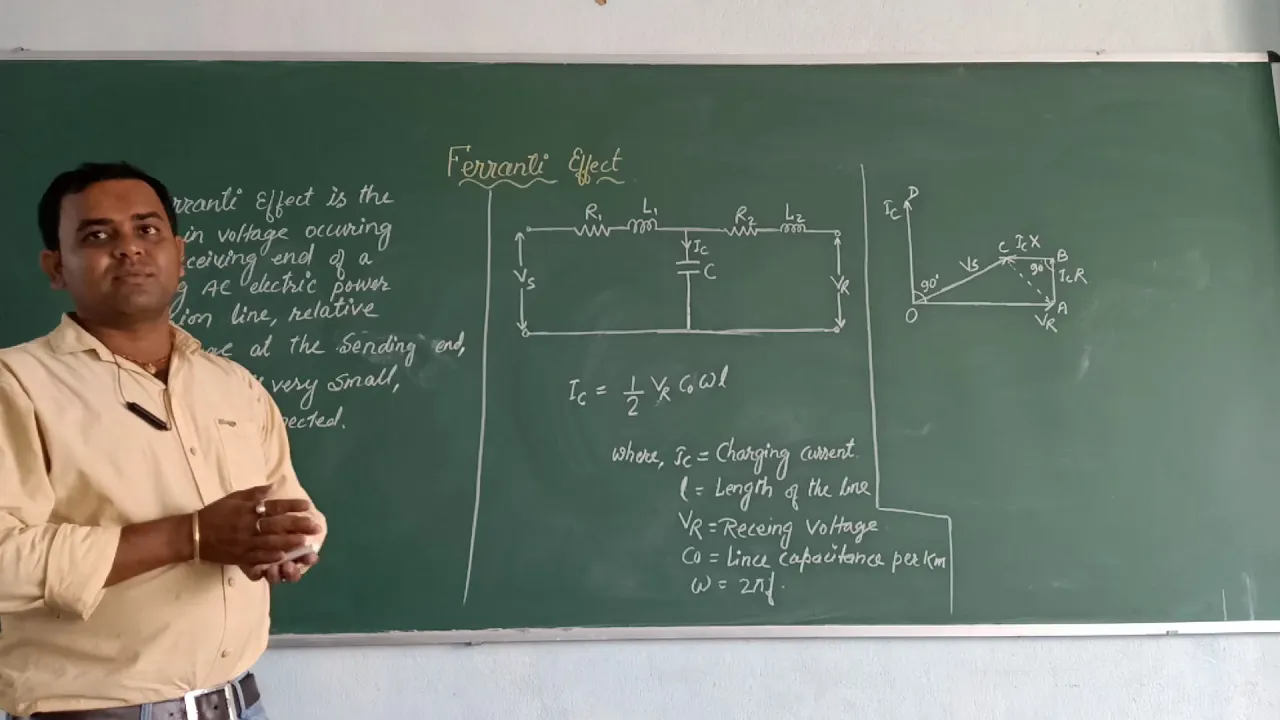 Ferranti Effect
rranti Effect is the
in voltage occuring
ceiving end of a
g AC electric power
ion line, relative
at the Sending end,
very small,
ected.
R₁ L₁ R₂ L₂
I_C
C
V_S V_R
I_C = 1/2 V_R C₀ ωl
where, I_C = Charging current.
l = Length of the line
V_R = Receing Voltage
C₀ = Lince capacitance per Km
ω = 2πf.
D
I_C
C I_C X B
V_S 90° I_C R
90°
O A
V_R